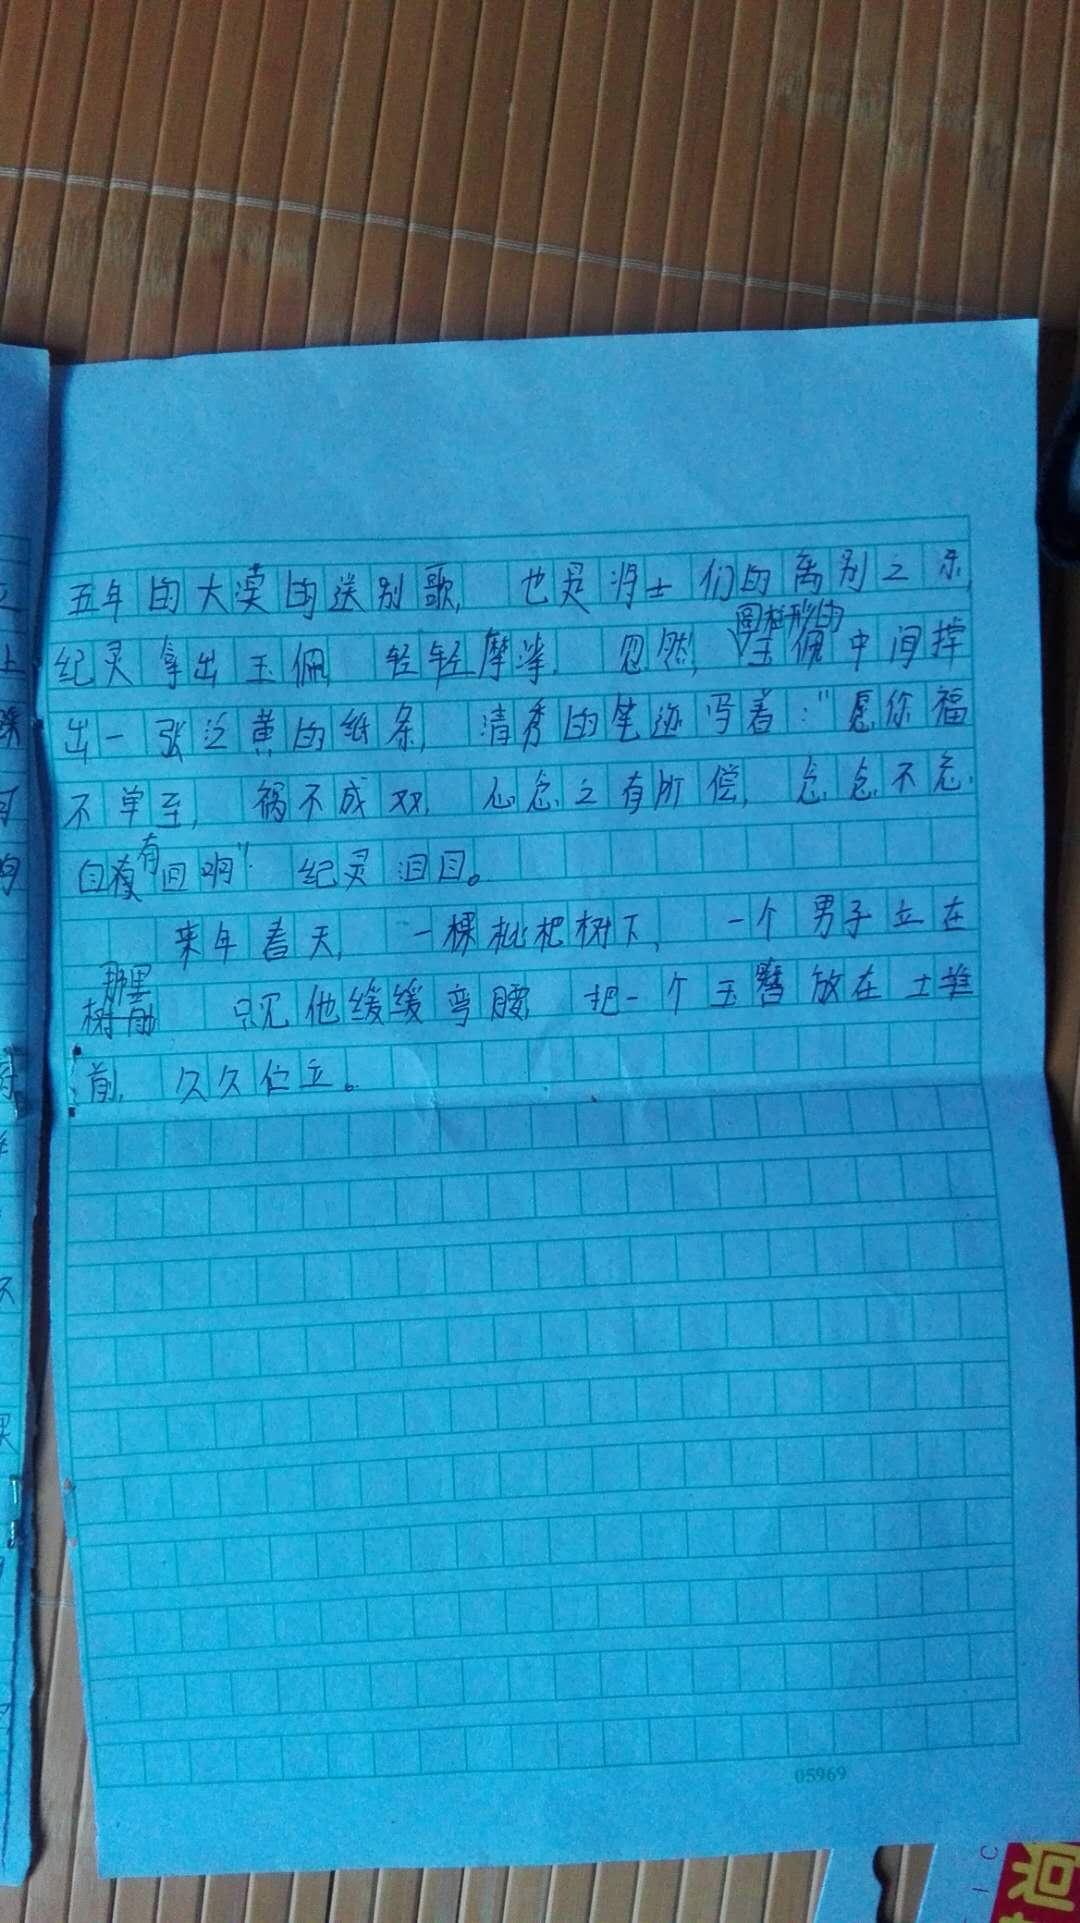 五年的大漠的送别歌，也是将士们的离别之乐，
纪灵拿出玉佩，轻轻摩挲，忽然，圆柱形的玉佩中间掉
出一张泛黄的纸条，清秀的笔迹写着："愿你福
不单至，祸不成双，心念之有所偿，念念不忘，
自有回响"。纪灵泪目。
来年春天，一棵枇杷树下，一个男子立在
那里，只见他缓缓弯腰，把一个玉簪放在土堆
前，久久伫立。
05969